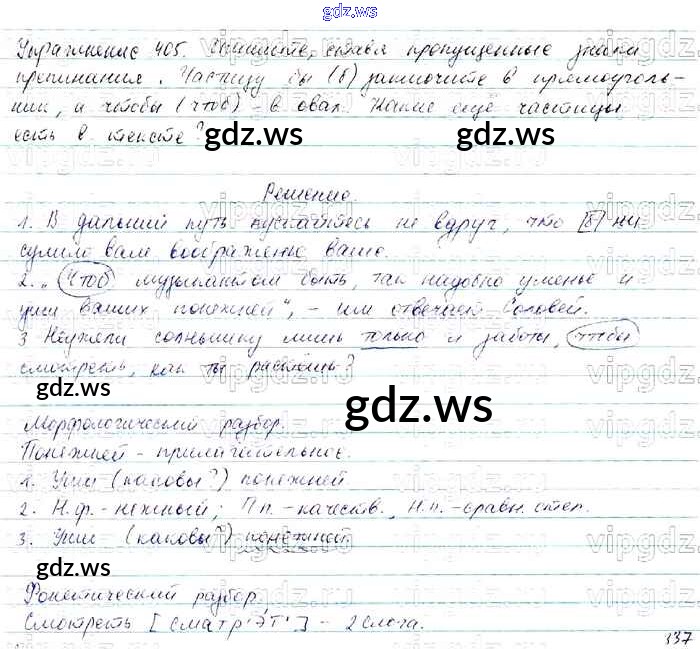 gdz.ws
Упражнение 405. Спишите, ставя пропущенные знаки
препинания. Частицу бы (б) заключите в прямоуголь-
ник, а чтобы (чтоб) - в овал. Какие ещё частицы
есть в тексте?
gdz.ws gdz.ws
Решение
1. В дальний путь пускайтесь не вдруг, что [б] ни
сулило вам воображенье ваше.
2. „Чтоб музыкантом быть, так надобно уменье и
уши ваших понежней“, - им отвечает Соловей.
3 Неужели солнышку лишь только и заботы, чтобы
смотреть, как ты растёшь?
gdz.ws
gdz.ws
Морфологический разбор.
Понежней - прилагательное.
1. Уши (каковы?) понежней
2. Н.ф. - нежный; Пп. - качеств., Н.п. - сравн. степ.
3. Уши (каковы?) понежней.
gdz.ws gdz.ws
Фонетический разбор.
Смотреть [сматр'эт'] - 2 слога.
337